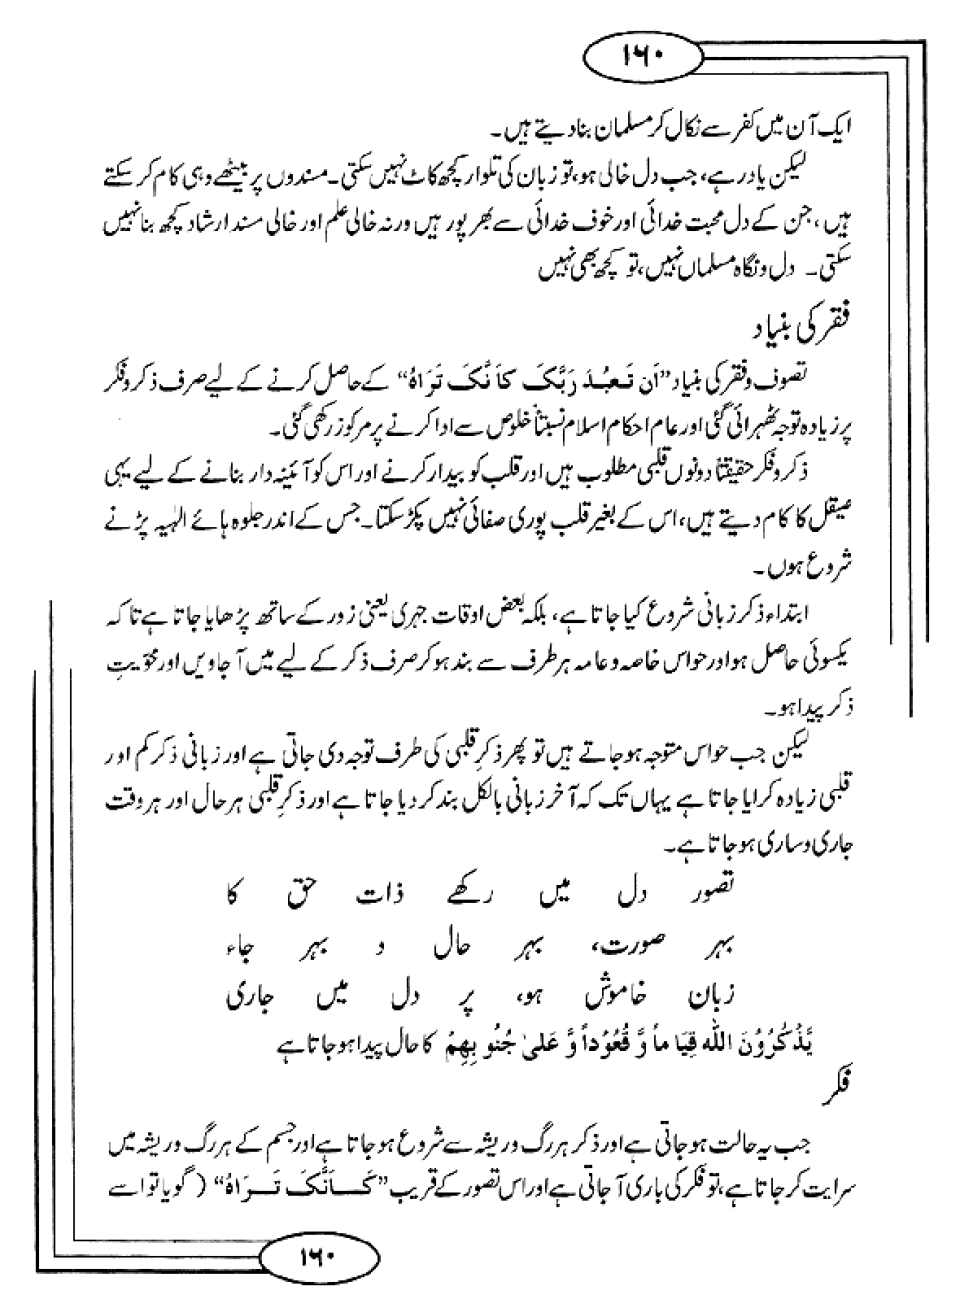 ۱۶۰
ایک آن میں کفر سے نکال کر مسلمان بنا دیتے ہیں۔
لیکن یاد رہے، جب دل خالی ہو، تو زبان کی تلوار کچھ کاٹ نہیں سکتی۔ مسندوں پر بیٹھے وہی کام کر سکتے
ہیں، جن کے دل محبت خدائی اور خوف خدائی سے بھر پور ہیں ورنہ خالی علم اور خالی مسند ارشاد کچھ بنا نہیں
سکتی۔ دل و نگاہ مسلماں نہیں، تو کچھ بھی نہیں
فقر کی بنیاد
تصوف و فقر کی بنیاد ”اَن تَعبُدَ رَبَّکَ کَاَنَّکَ تَرَاہُ“ کے حاصل کرنے کے لیے صرف ذکر و فکر
پر زیادہ توجہ ٹھہرائی گئی اور عام احکام اسلام نسبتاً خلوص سے ادا کرنے پر مرکوز رکھی گئی۔
ذکر و فکر حقیقتاً دونوں قلبی مطلوب ہیں اور قلب کو بیدار کرنے اور اس کو آئینہ دار بنانے کے لیے یہی
صیقل کا کام دیتے ہیں، اس کے بغیر قلب پوری صفائی نہیں پکڑ سکتا۔ جس کے اندر جلوہ ہائے الٰہیہ پڑنے
شروع ہوں۔
ابتداء ذکر زبانی شروع کیا جاتا ہے، بلکہ بعض اوقات جہری یعنی زور کے ساتھ پڑھایا جاتا ہے تا کہ
یکسوئی حاصل ہو اور حواس خاصہ و عامہ ہر طرف سے بند ہو کر صرف ذکر کے لیے میں آ جاویں اور محویتِ
ذکر پیدا ہو۔
لیکن جب حواس متوجہ ہو جاتے ہیں تو پھر ذکرِ قلبی کی طرف توجہ دی جاتی ہے اور زبانی ذکر کم اور
قلبی زیادہ کرایا جاتا ہے یہاں تک کہ آخر زبانی بالکل بند کر دیا جاتا ہے اور ذکرِ قلبی ہر حال اور ہر وقت
جاری و ساری ہو جاتا ہے۔
تصور دل میں رکھے ذات حق کا
بہر صورت، بہر حال و بہر جاء
زبان خاموش ہو، پر دل میں جاری
یَّذْکُرُوْنَ اللّٰہَ قِیَا ماً وَّ قُعُوْداً وَّ عَلیٰ جُنُو بِھِمْ کا حال پیدا ہو جاتا ہے
فکر
جب یہ حالت ہو جاتی ہے اور ذکر ہر رگ و ریشہ سے شروع ہو جاتا ہے اور جسم کے ہر رگ و ریشہ میں
سرایت کر جاتا ہے، تو فکر کی باری آ جاتی ہے اور اس تصور کے قریب ”کَــاَنَّکَ تَــرَاہُ“ (گویا تو اسے
۱۶۰